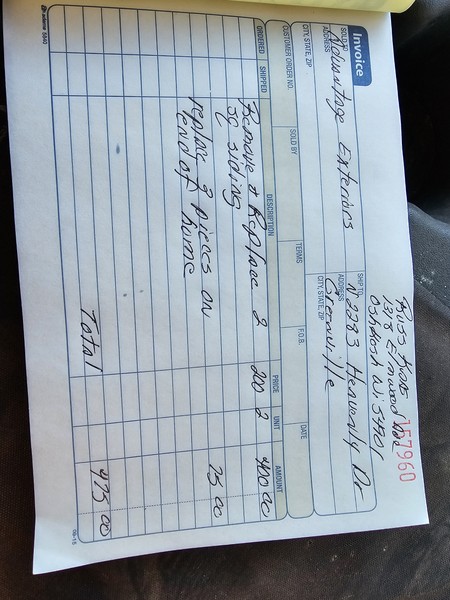 Russ Krole
1318 Elmwood Ave
Oshkosh Wi. 54901
157960
Invoice
SOLD TO Advantage Exteriors
ADDRESS
CITY, STATE, ZIP
SHIP TO N 2283 Heavenly Dr
ADDRESS Greenville
CITY, STATE, ZIP
CUSTOMER ORDER NO. SOLD BY TERMS F.O.B. DATE
ORDERED SHIPPED DESCRIPTION PRICE UNIT AMOUNT
Remove & Replace 2 200 2 400 00
SQ siding
replace 2 pieces on 75 00
end of home
Total 475 00
adams 5840